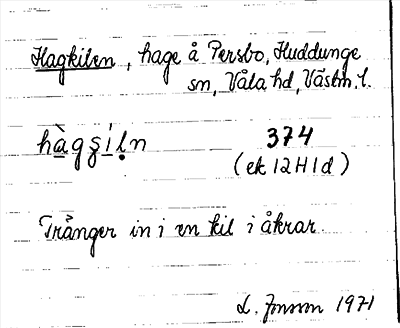 Hagkilen, hage å Persbo, Huddunge
sn, Våla hd, Västm. l.
hàgʂíḷn 374
(ek 12H1d)
Tränger in i en kil i åkrar.
L. Jonson 1971